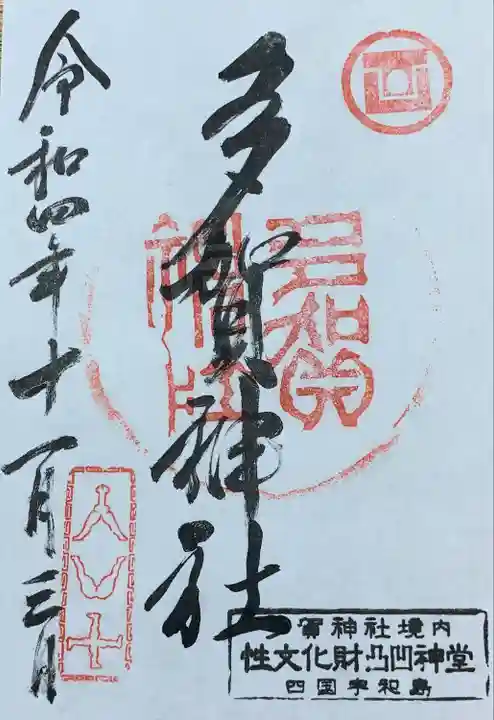 多賀神社
令和四年十一月三日
多賀
神社
賀神社境内
性文化財凸凹神堂
四国宇和島